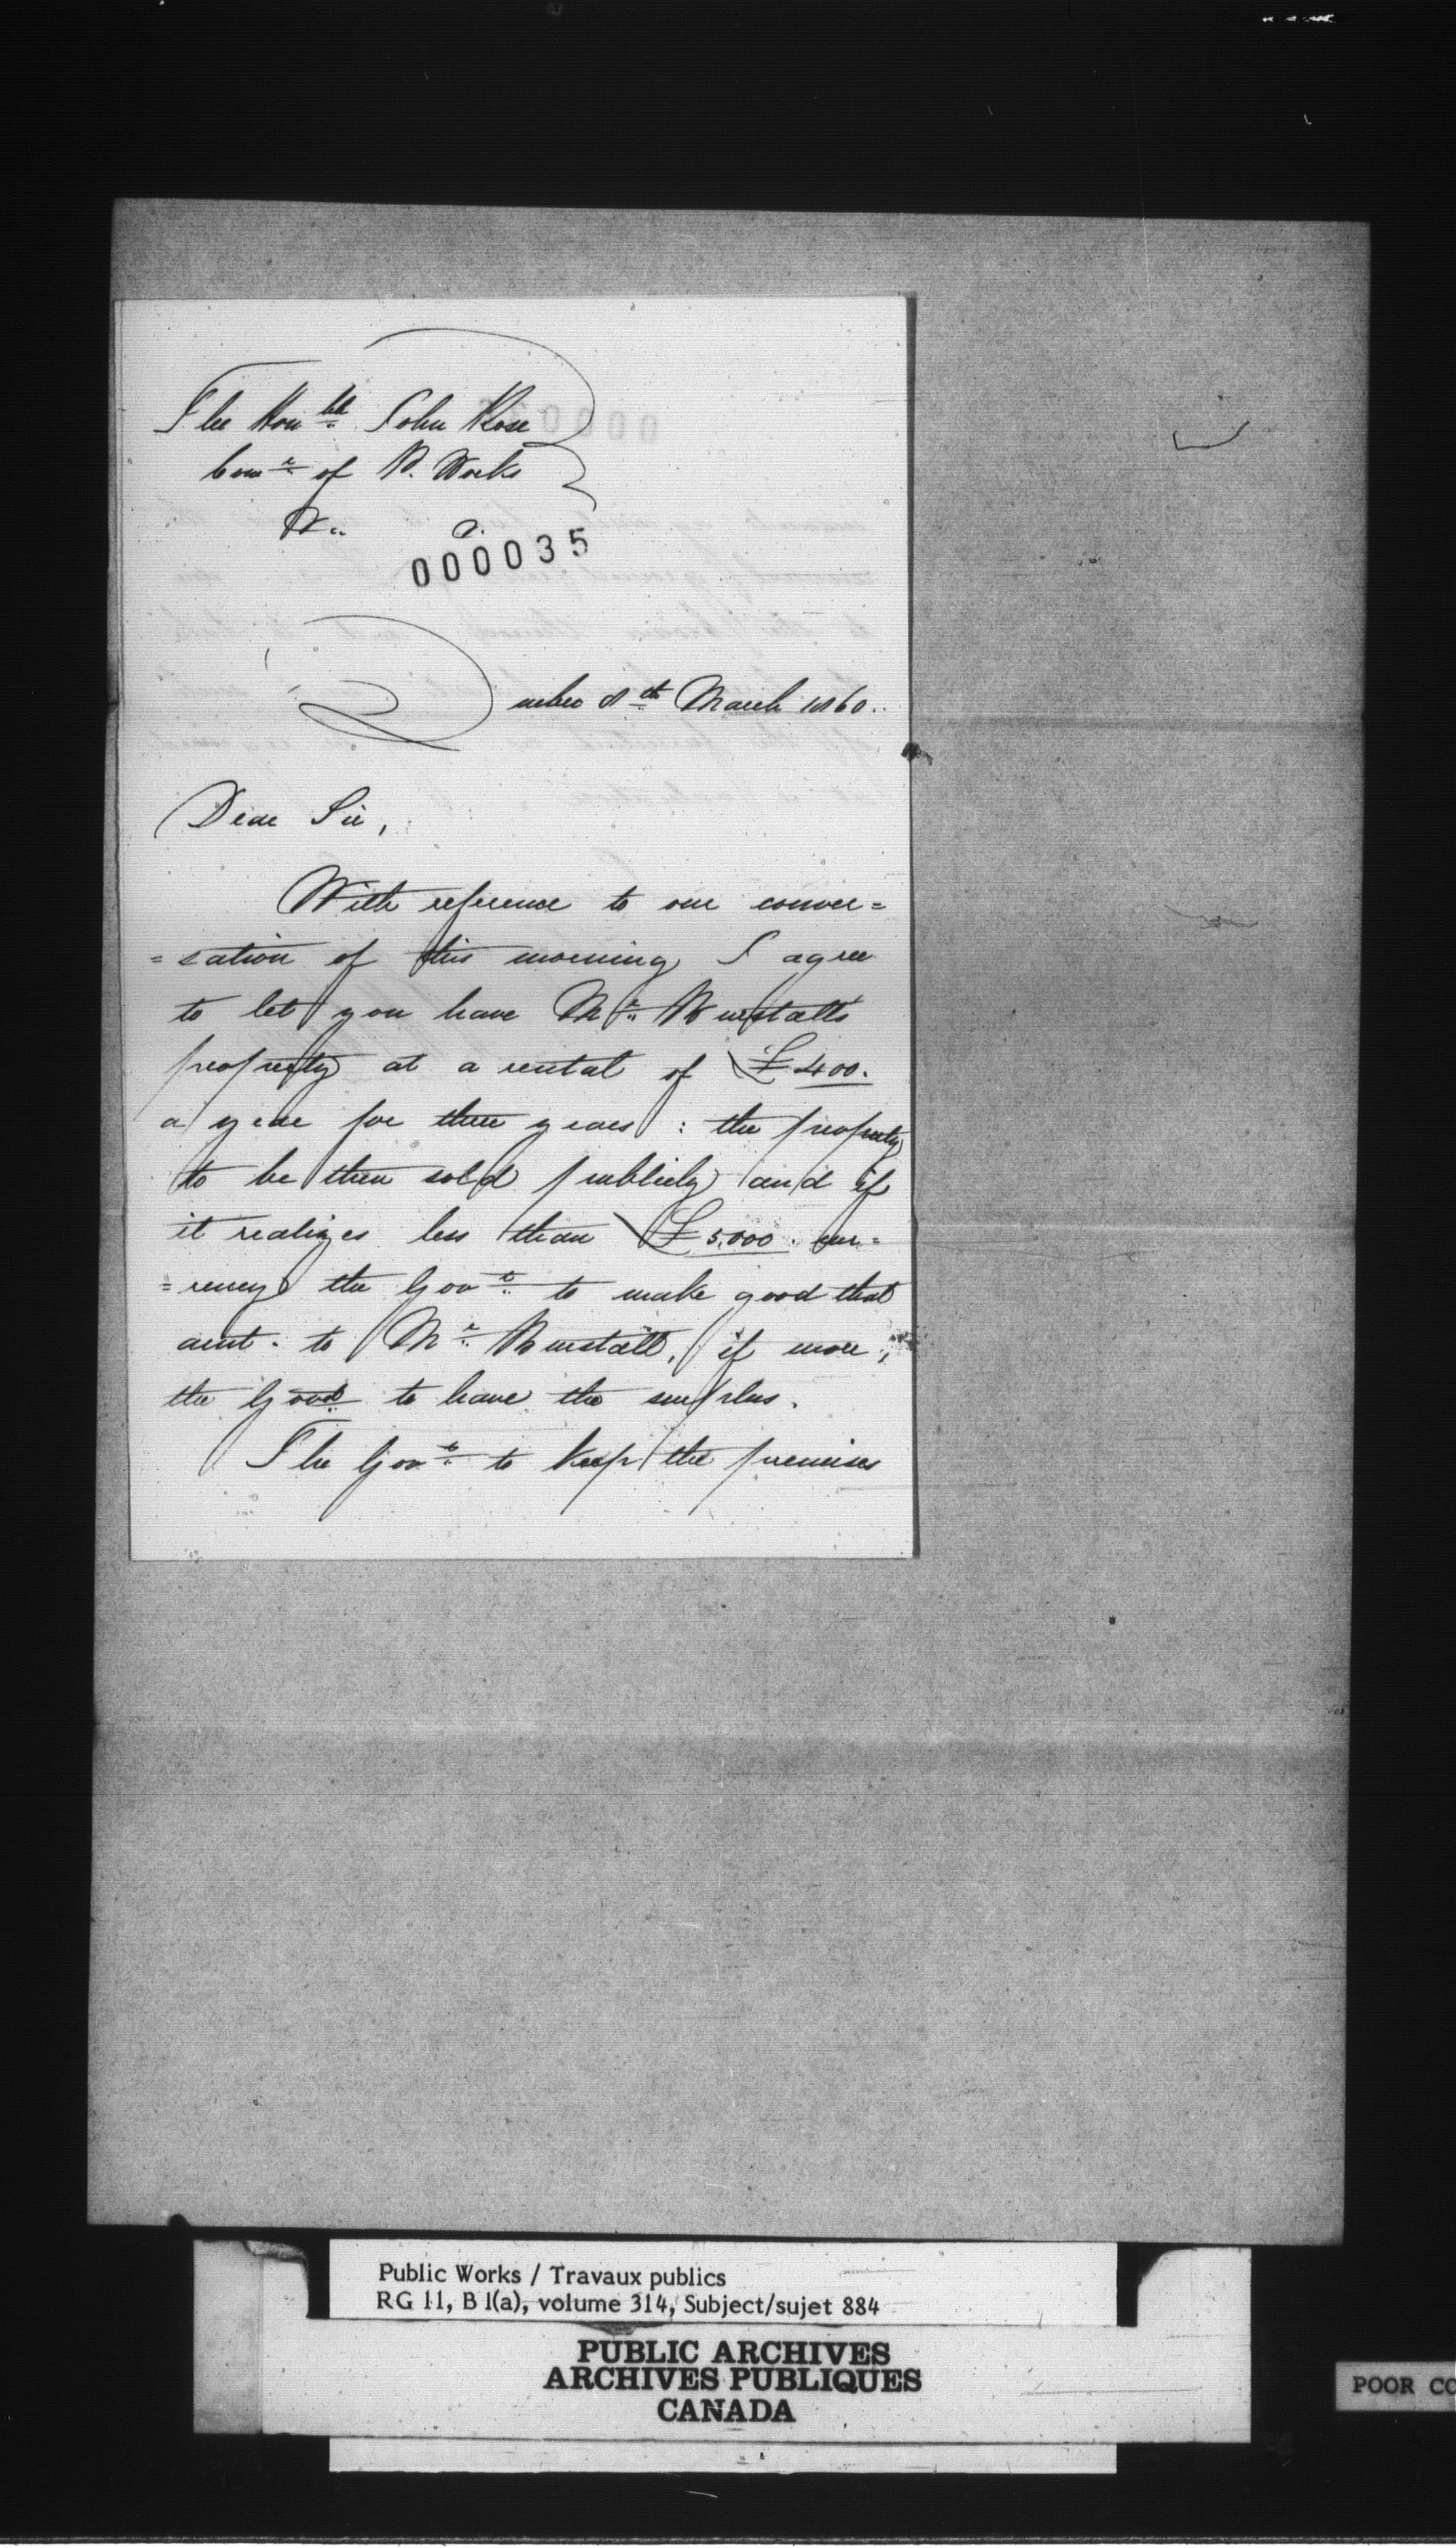 The Honble John Rose
Comr of P. Works
&c. &c.
000035
Quebec 8th March 1860.
Dear Sir,
With reference to our conver=
=sation of this morning I agree
to let you have Mr. Burstall's
property at a rental of £400.
a year for three years: the property
to be then sold publicly and if
it realizes less than £5,000. cur=
=rency the Govt. to make good that
amt. to Mr. Burstall, if more,
the Govt. to have the surplus.
The Govt. to keep the premises
Public Works / Travaux publics
RG 11, B 1(a), volume 314, Subject/sujet 884
PUBLIC ARCHIVES
ARCHIVES PUBLIQUES
CANADA
POOR CO